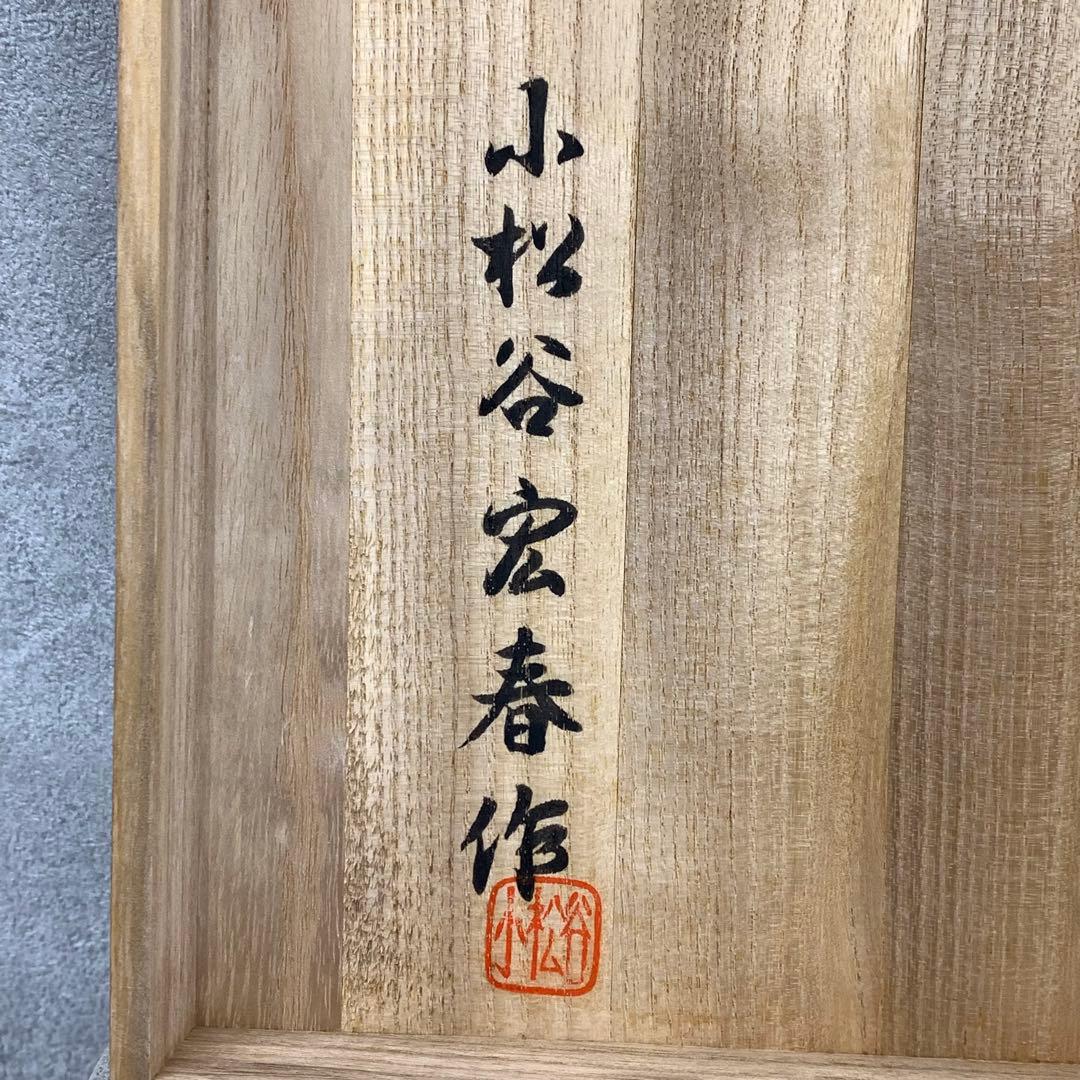 小松谷宏春作
小松谷